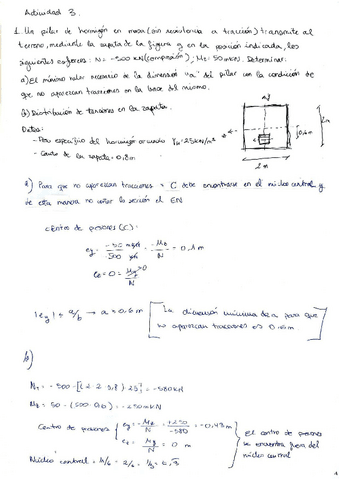 Actividad 3.
1. Un pilar de hormigón en masa (sin resistencia a tracción) transmite al
terreno, mediante la zapata de la figura y en la posición indicada, los
siguientes esfuerzos: N = -500 kN (compresión); Mz = 50 mkN. Determinar:
a) El mínimo valor necesario de la dimensión "a" del pillar con la condición de
que no aparezcan tracciones en la base del mismo.
b) Distribución de tensiones en la zapata.
Datos:
- Peso específico del hormigón armado γh = 25 kN/m³
- Canto de la zapata = 0,8m
2m
2m
a) Para que no aparezcan tracciones = C debe encontrarse en el núcleo central, y
de esta manera no cortar la sección el EN
centro de presiones (C):
ey = = -Mz/N = 0,1 m
ez = 0 = My/N
|ey| = a/6 → a = 0,6 m
La dimensión mínima de a para que
no aparezcan tracciones es 0,6m
b)
N = -500 - [2·2·0,8]·25 = -580kN
Centro de presiones
ey = -Mz/N = = -0,43 m
ez = My/N = 0 m
El centro de presiones
se encuentra fuera del
núcleo central
Núcleo central = h/6 = 2/6 = 1/3 =